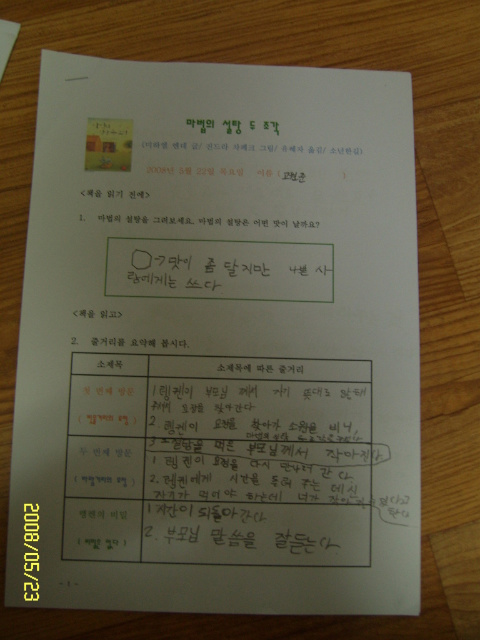 마법의 설탕 두 조각
(미하엘 엔데 글/ 진드라 차페크 그림/ 유혜자 옮김/ 소년한길)
2008년 5월 22일 목요일 이름 ( )
<책을 읽기 전에>
1. 마법의 설탕을 그려보세요. 마법의 설탕은 어떤 맛이 날까요?
○→맛이 좀 달지만 나쁜 사
람에게는 쓰다
<책을 읽고>
2. 줄거리를 요약해 봅시다.
소제목 소제목에 따른 줄거리
첫 번째 방문
1. 렝켄이 부모님
2. 렝켄이 요정을 찾아가 소원을 비니,
3. 설탕을 먹은 부모님께서 작아지다.
두 번째 방문
1. 렝켄이 요정을 다시 만나러 간다.
2. 렝켄에게 시간을 돌려 주는 대신
렝켄의 비밀
1. 시간이 되돌아간다
2. 부모님 말씀을 잘듣는다.
- 1 -
2008/05/23